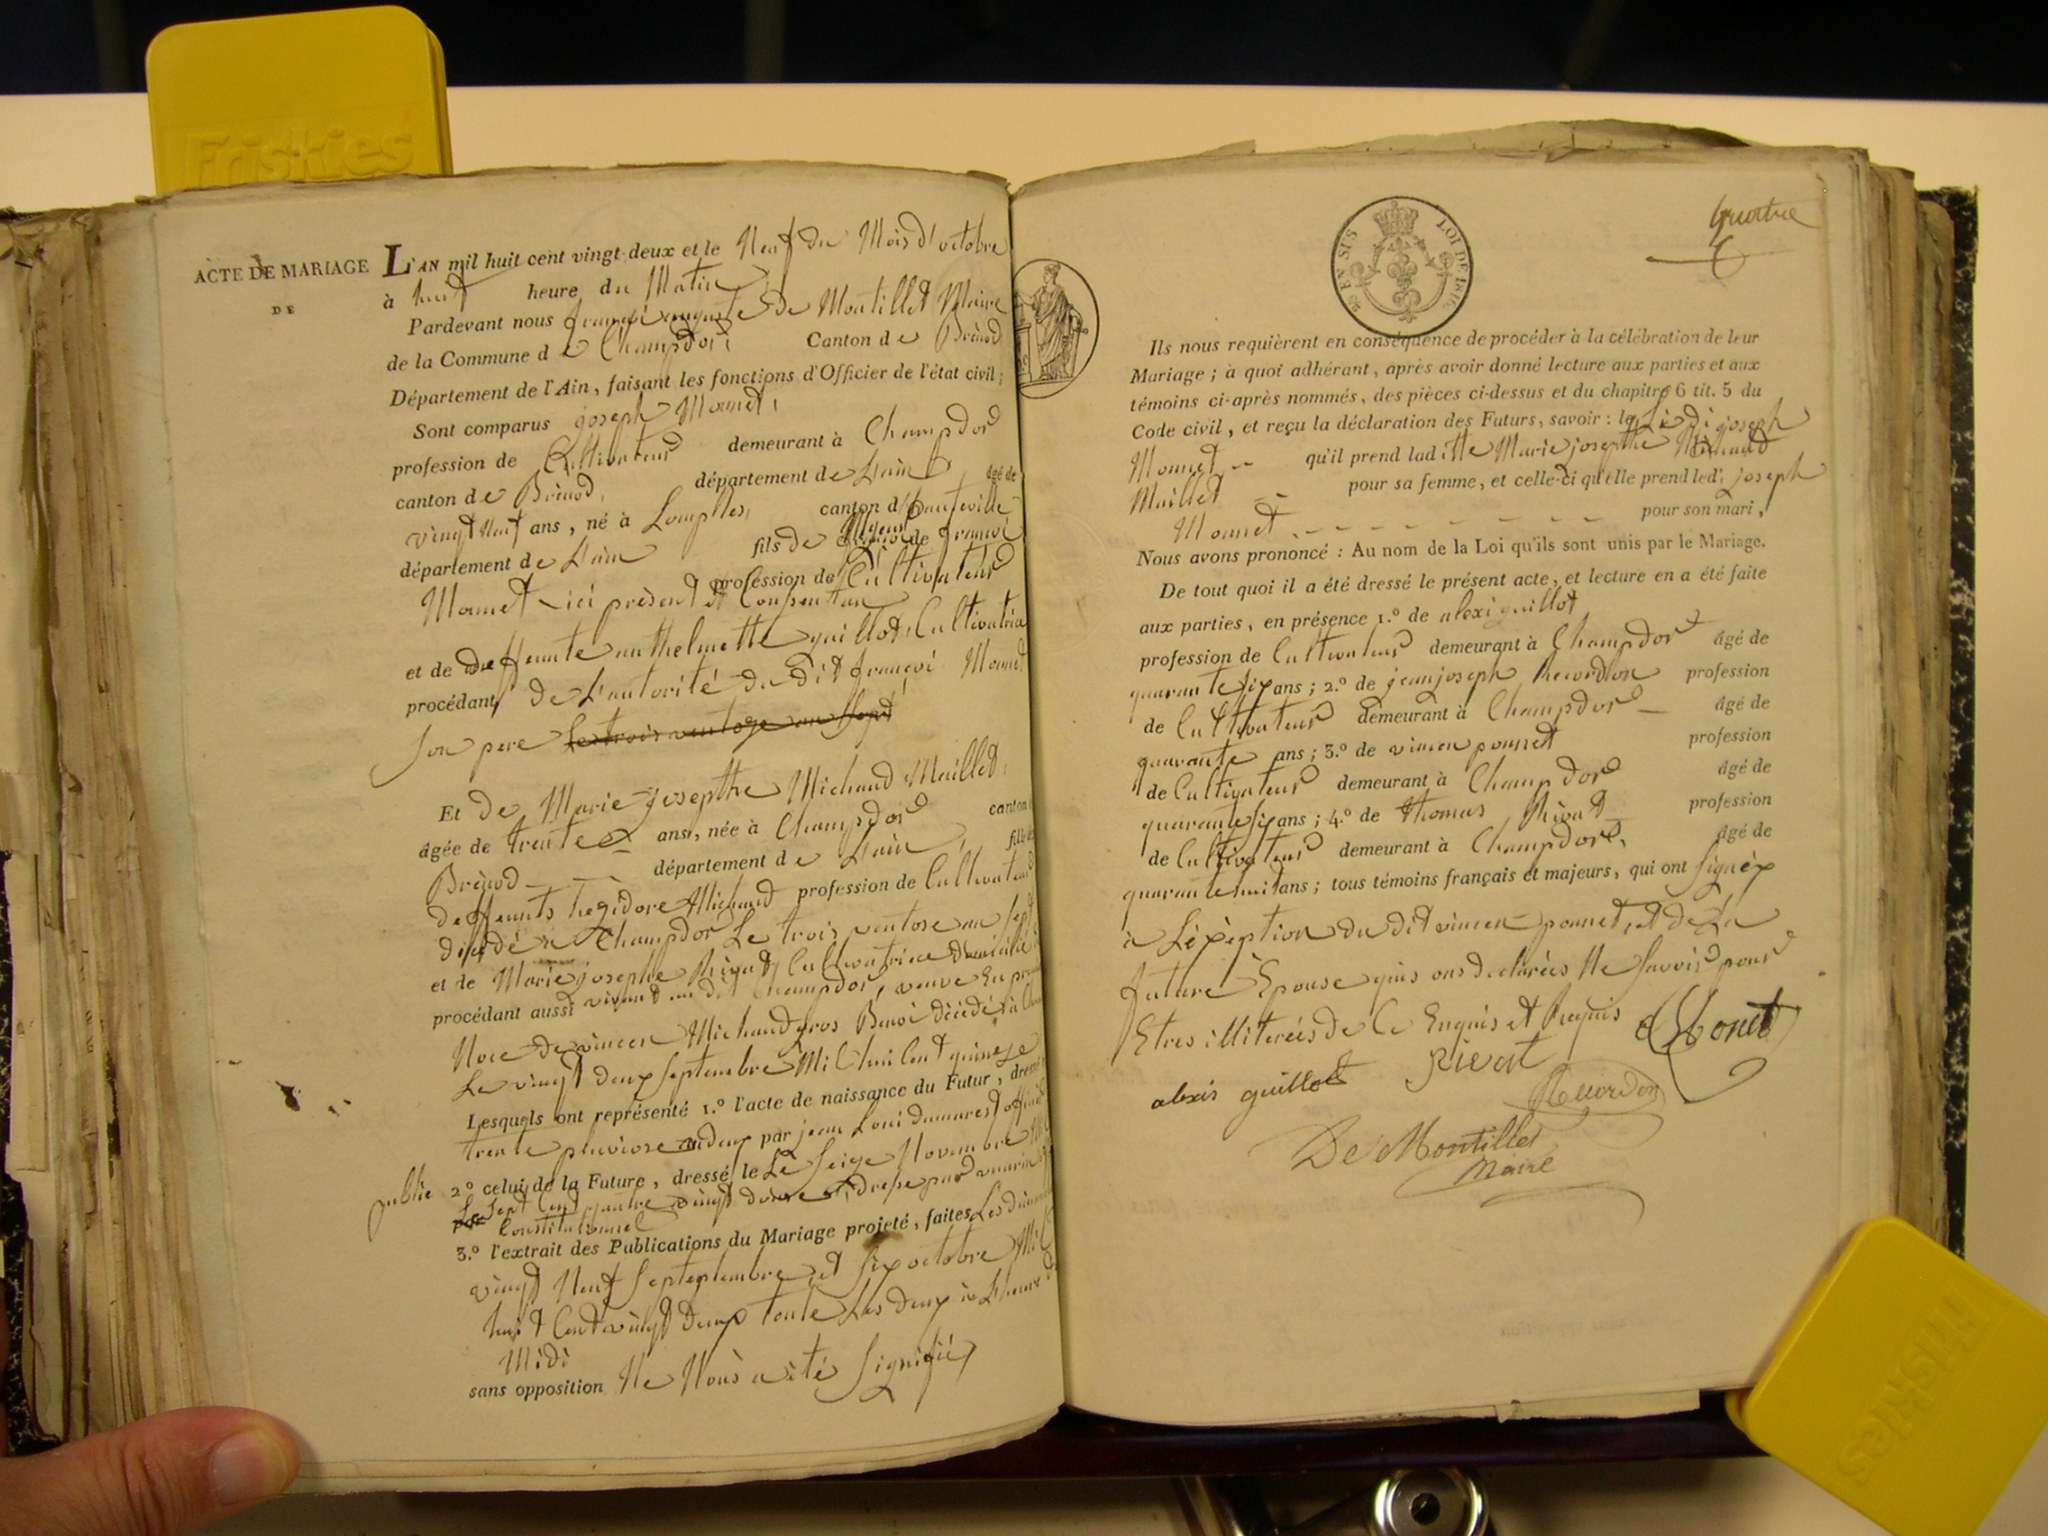 Friskies
ACTE DE MARIAGE
DE
L'AN mil huit cent vingt-deux et le Neuf du Mois d'octobre
à huit heure du Matin
Pardevant nous françoi auguste de Montillet Maire
de la Commune d e Champdor Canton d e Brénod
Département de l'Ain, faisant les fonctions d'Officier de l'état civil;
Sont comparus joseph Monnet,
profession de Cultivateur demeurant à Champdor
canton d e Brénod, département de L'ain âgé de
vingt Neuf ans, né à Lompnes, canton d'hauteville
département d e L'ain fils de Majeur de françoi
Monnet ici présent et Consentan profession de Cultivateur
et de deffeunte anthelmette guillot, Cultivatrice
procédant de L'autorité du dit françoi Monnet
Son pere le trois ventose an Sept
Et de Marie josepthe Michaud Maillet,
âgée de trente ans, née à Champdor canton
Brénod département d e L'ain, fille de
deffeunts Michaud profession de Cultivateur
décédé a Champdor Le trois ventose an Sept
et de Marie josephe Rivat, Cultivatrice
procédant aussi vivant au dit Champdor, veuve En
Noce de vincen Michaud gros Benoi décédé à
Le vingt deux Septembre Mil huit Cent quinze
Lesquels ont représenté 1.º l'acte de naissance du Futur, dressé
trente pluviose an deux par jean Loui officié
public 2º celui de la Future, dressé le Le Seize Novembre
Sept Cent quatre vingt dresse par
Constitutionnel
3.º l'extrait des Publications du Mariage projeté, faites Les
vingt Neuf Septeptembre et Six octobre Mil
huit Cent vingt Deux toute Les deux à L'heure de
Midi
sans opposition Ne Nous a été Signifié
quatre
EN SUS LOI DE 1816
Ils nous requièrent en conséquence de procéder à la célébration de leur
Mariage; à quoi adhérant, après avoir donné lecture aux parties et aux
témoins ci-après nommés, des pièces ci-dessus et du chapitre 6 tit. 5 du
Code civil, et reçu la déclaration des Futurs, savoir: le Lédi joseph
Monnet qu'il prend lad itte Marie josepthe Michaud
Maillet pour sa femme, et celle-ci qu'elle prend led. joseph
Monnet pour son mari,
Nous avons prononcé: Au nom de la Loi qu'ils sont unis par le Mariage.
De tout quoi il a été dressé le présent acte, et lecture en a été faite
aux parties, en présence 1.º de alexi guillot
profession de Cultivateur demeurant à Champdor âgé de
quarante six ans; 2.º de jean joseph Recordon profession
de Cultivateur demeurant à Champdor âgé de
quarante ans; 3.º de vincen ponnet profession
de Cultivateur demeurant à Champdor âgé de
quarante six ans; 4.º de thomas Rivat profession
de Cultivateur demeurant à Champdor, âgé de
quarante huit ans; tous témoins français et majeurs, qui ont Signéx
a L'éxeption du dit vincen ponnet, et de La
future Epouse qui ons declarées Ne Savoir pour
Etres illiterées de Ce Enquis et Requis Monet
alexis guillot Rivat
Recordon
De Montillet
Maire
Friskies